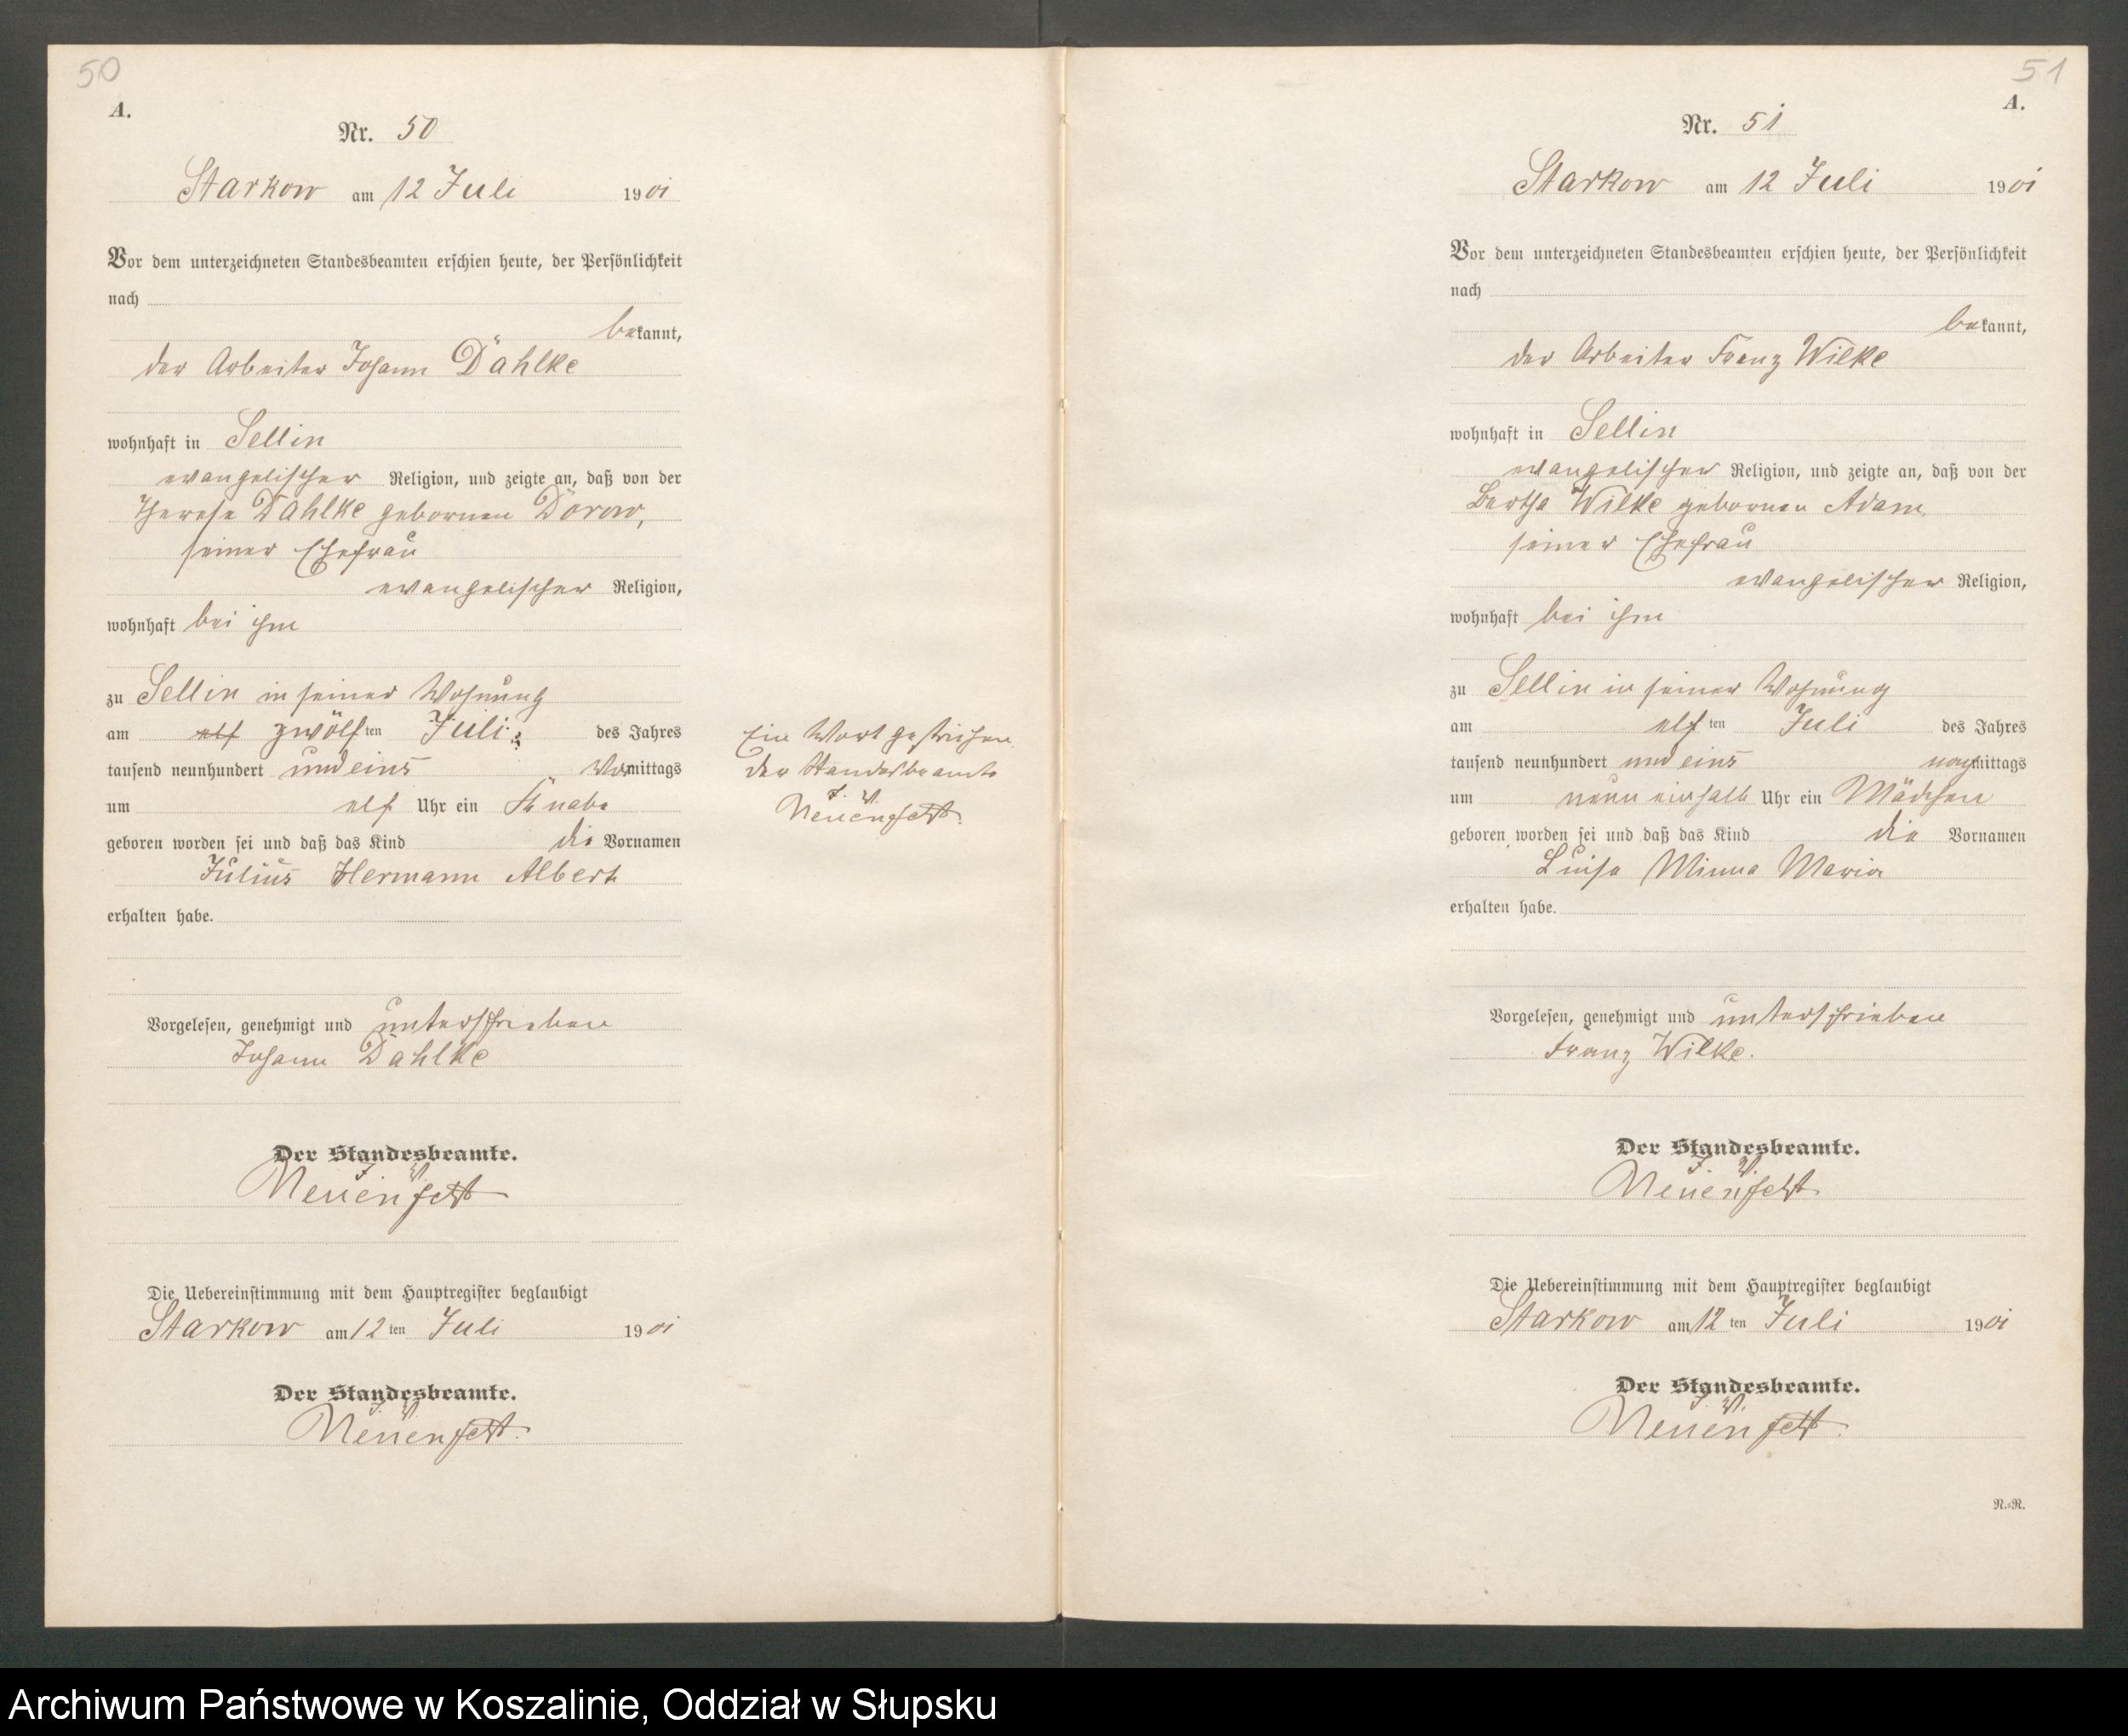 50
A.
Nr. 50
Starkow am 12 Juli 1901
Vor dem unterzeichneten Standesbeamten erschien heute, der Persönlichkeit
nach
bekannt,
der Arbeiter Johann Dahlke
wohnhaft in Sellin
evangelischer Religion, und zeigte an, daß von der
Therese Dahlke gebornen Dorow,
seiner Ehefrau
evangelischer Religion,
wohnhaft bei ihm
zu Sellin in seiner Wohnung
am elf zwölften Juli des Jahres
tausend neunhundert und eins Vormittags
um elf Uhr ein Knabe
geboren worden sei und daß das Kind die Vornamen
Julius Hermann Albert
erhalten habe.
Vorgelesen, genehmigt und unterschrieben
Johann Dahlke
Der Standesbeamte.
J. V.
Die Uebereinstimmung mit dem Hauptregister beglaubigt
Starkow am 12ten Juli 1901
Der Standesbeamte.
J. V.
Ein Wort gestrichen.
Der Standesbeamte
J. V.
51
A.
Nr. 51
Starkow am 12 Juli 1901
Vor dem unterzeichneten Standesbeamten erschien heute, der Persönlichkeit
nach
bekannt,
der Arbeiter Franz Wilke
wohnhaft in Sellin
evangelischer Religion, und zeigte an, daß von der
Bertha Wilke gebornen Adam,
seiner Ehefrau
evangelischer Religion,
wohnhaft bei ihm
zu Sellin in seiner Wohnung
am elften Juli des Jahres
tausend neunhundert und eins nachmittags
um neun einhalb Uhr ein Mädchen
geboren worden sei und daß das Kind die Vornamen
Luise Minna Maria
erhalten habe.
Vorgelesen, genehmigt und unterschrieben
Franz Wilke.
Der Standesbeamte.
J. V.
Die Uebereinstimmung mit dem Hauptregister beglaubigt
Starkow am 12ten Juli 1901
Der Standesbeamte.
J. V.
N.=R.
Archiwum Państwowe w Koszalinie, Oddział w Słupsku